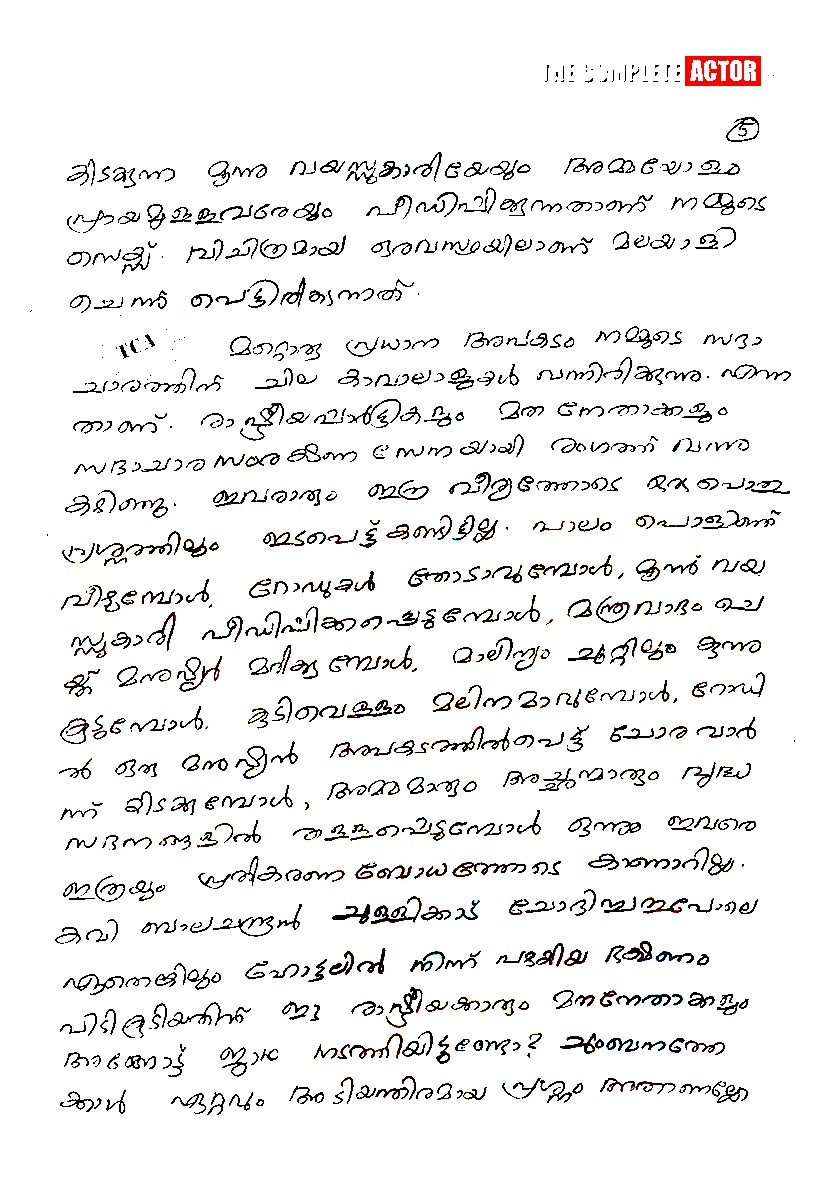 THE COMPLETE ACTOR
5
കിടക്കുന്ന മൂന്നു വയസ്സുകാരിയേയും അമ്മയോളം
പ്രായമുള്ളവരേയും പീഡിപ്പിക്കുന്നതാണ് നമ്മുടെ
സെക്സ്. വിചിത്രമായ ഒരവസ്ഥയിലാണ് മലയാളി
ചെന്നു പെട്ടിരിക്കുന്നത്.
TCA മറ്റൊരു പ്രധാന അപകടം നമ്മുടെ സദാ
ചാരത്തിന് ചില കാവാലാളുകൾ വന്നിരിക്കുന്നു. എന്ന
താണ്. രാഷ്ട്രീയപാർട്ടികളും മത നേതാക്കളും
സദാചാര സംരക്ഷണ സേനയായി രംഗത്ത് വന്നു
കഴിഞ്ഞു. ഇവരാരും ഇത്ര വീര്യത്തോടെ ഒരു പൊതു
പ്രശ്നത്തിലും ഇടപെട്ട് കണ്ടിട്ടില്ല. പാലം പൊളിഞ്ഞ്
വീഴുമ്പോൾ, റോഡുകൾ തോടാവുമ്പോൾ, മൂന്ന് വയ
സ്സുകാരി പീഡിപ്പിക്കപ്പെടുമ്പോൾ, മന്ത്രവാദം ചെ
യ്ത് മനുഷ്യർ മരിക്കുമ്പോൾ, മാലിന്യം ചുറ്റിലും കുന്നു
കൂടുമ്പോൾ, കുടിവെള്ളം മലിനമാവുമ്പോൾ, റോഡി
ൽ ഒരു മനുഷ്യൻ അപകടത്തിൽപെട്ട് ചോര വാർ
ന്ന് കിടക്കുമ്പോൾ, അമ്മമാരും അച്ഛന്മാരും വൃദ്ധ
സദനങ്ങളിൽ തള്ളപ്പെടുമ്പോൾ ഒന്നും ഇവരെ
ഇത്രയും പ്രതികരണ ബോധത്തോടെ കാണാറില്ല.
കവി ബാലചന്ദ്രൻ ചുള്ളിക്കാട് ചോദിച്ചതുപോലെ
ഏതെങ്കിലും ഹോട്ടലിൽ നിന്ന് പഴകിയ ഭക്ഷണം
പിടികൂടിയതിന് ഈ രാഷ്ട്രീയക്കാരും മതനേതാക്കളും
അങ്ങോട്ട് ജാഥ നടത്തിയിട്ടുണ്ടോ? ചുംബനത്തേ
ക്കാൾ ഏറ്റവും അടിയന്തിരമായ പ്രശ്നം അതാണല്ലോ